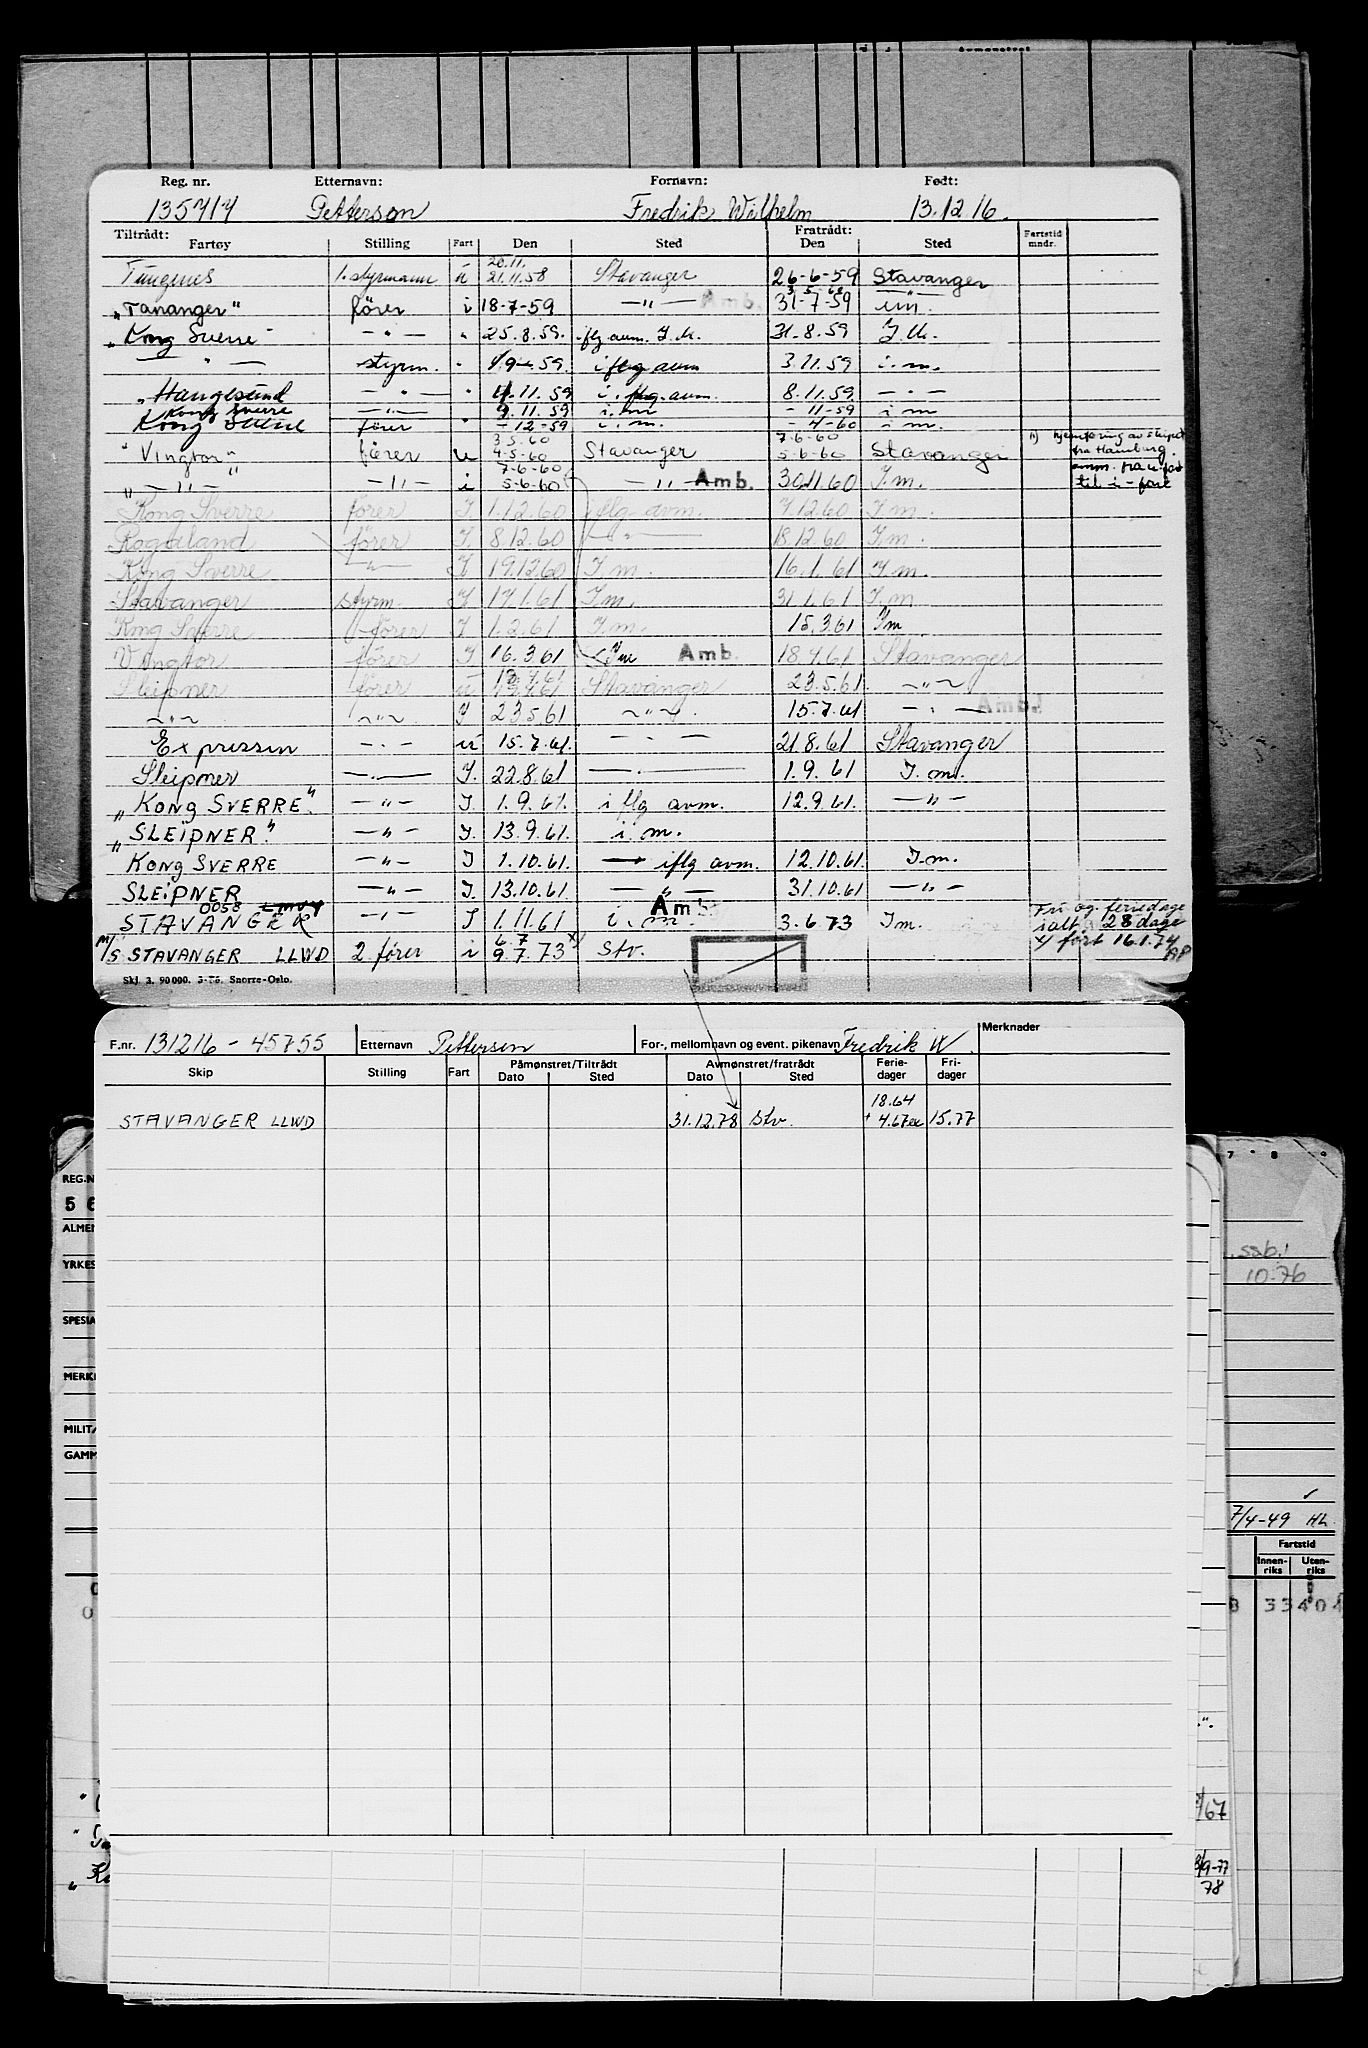 Reg. nr. Etternavn: Fornavn: Født:
135717 Petterson Fredrik Wilhelm 13.12 16.
Tiltrådt: Fratrådt: Fartstid
Fartøy Stilling Fart Den Sted Den Sted mndr.
20.11.
Tungenes 1. styrmann u 21.11.58 Stavanger 26-6-59 Stavanger
3-5-60
"Tananger" fører i 18-7-59 —"— Amb. 31-7-59
"Kong Sverre —"— " 25.8.59. iflg. avm. I.M. 31.8.59 I.M.
—"— styrm. " 1/9-59 iflg avm 3.11.59 i.m.
"Haugesund —"— " 4.11.59 i. flg. avm. 8.11.59 —"—
Kong Sverre —"— 9.11.59 i.m - 11-59 i m
Kong Sverre fører " - 12-59 i.m. - 4-60 i m.
3-5-60 7-6-60
"Vingtor" fører u 4-5-60 Stavanger 5-6-60 Stavanger
x) hjemføring av skipet fra Hamburg.
amm. fra u-fart til i-fart
7-6-60
"—"— —"— i 5-6-60 —"— Amb. 30.11.60 I.m.
Kong Sverre fører I 1.12.60 iflg avm. 7.12.60 I m.
Rogaland fører I 8.12.60 —"— 18.12.60 I m.
Kong Sverre —"— I 19.12.60 I m. 16.1.61 I m.
Stavanger styrm. I 17.1.61 I m. 31.1.61 I m
Kong Sverre fører I 1.2.61 I m. 15.3.61 Im
Vingtor fører I 16.3.61 Im Amb. 18.4.61 Stavanger
Sleipner fører u Stavanger 23.5.61 —"—
—"— —"— I 23.5.61 —"— 15.7.61 —"— Amb.
Expressen —"— u 15.7.61. —"— 21.8.61 Stavanger
Sleipner —"— I. 22.8.61 —"— 1.9.61 I.m.
"KONG SVERRE". —"— I. 1.9.61. i flg avm. 12.9.61. —"—
"SLEIPNER". —"— I. 13.9.61. i.m.
KONG SVERRE —"— I 1.10.61. iflg avm. 12.10.61 I.m.
SLEIPNER —"— I. 13.10.61 —"— 31.10.61 —"—
0058 LMVY Amb
STAVANGER —"— I 1.11.61 i. m. 3.6 73 Im.
Fri og feriedage
ialt 28 dage
x/ført 16.1.74
AP
6.7
M/S STAVANGER LLWD 2. fører i 9.7.73 x) Stv.
Skj. 3. 90 000. 3-56. Snorre-Oslo.
F.nr. 131216 - 45755 Etternavn Pettersen For-, mellomnavn og event. pikenavn Fredrik W. Merknader
Skip Stilling Fart Påmønstret/Tiltrådt Avmønstret/fratrådt Ferie- Fri-
Dato Sted Dato Sted dager dager
18.64
STAVANGER LLWD 31.12.78 Stv. + 4.67 15.77
REG.N
5 6
ALMEN
YRKES
SPESIA
MERK
MILITÆ
GAMM
7 8 9
ssb.
10-76
7/4-49 HL.
Fartstid
Innen- Uten-
riks riks
33404
/67
/9-77
78